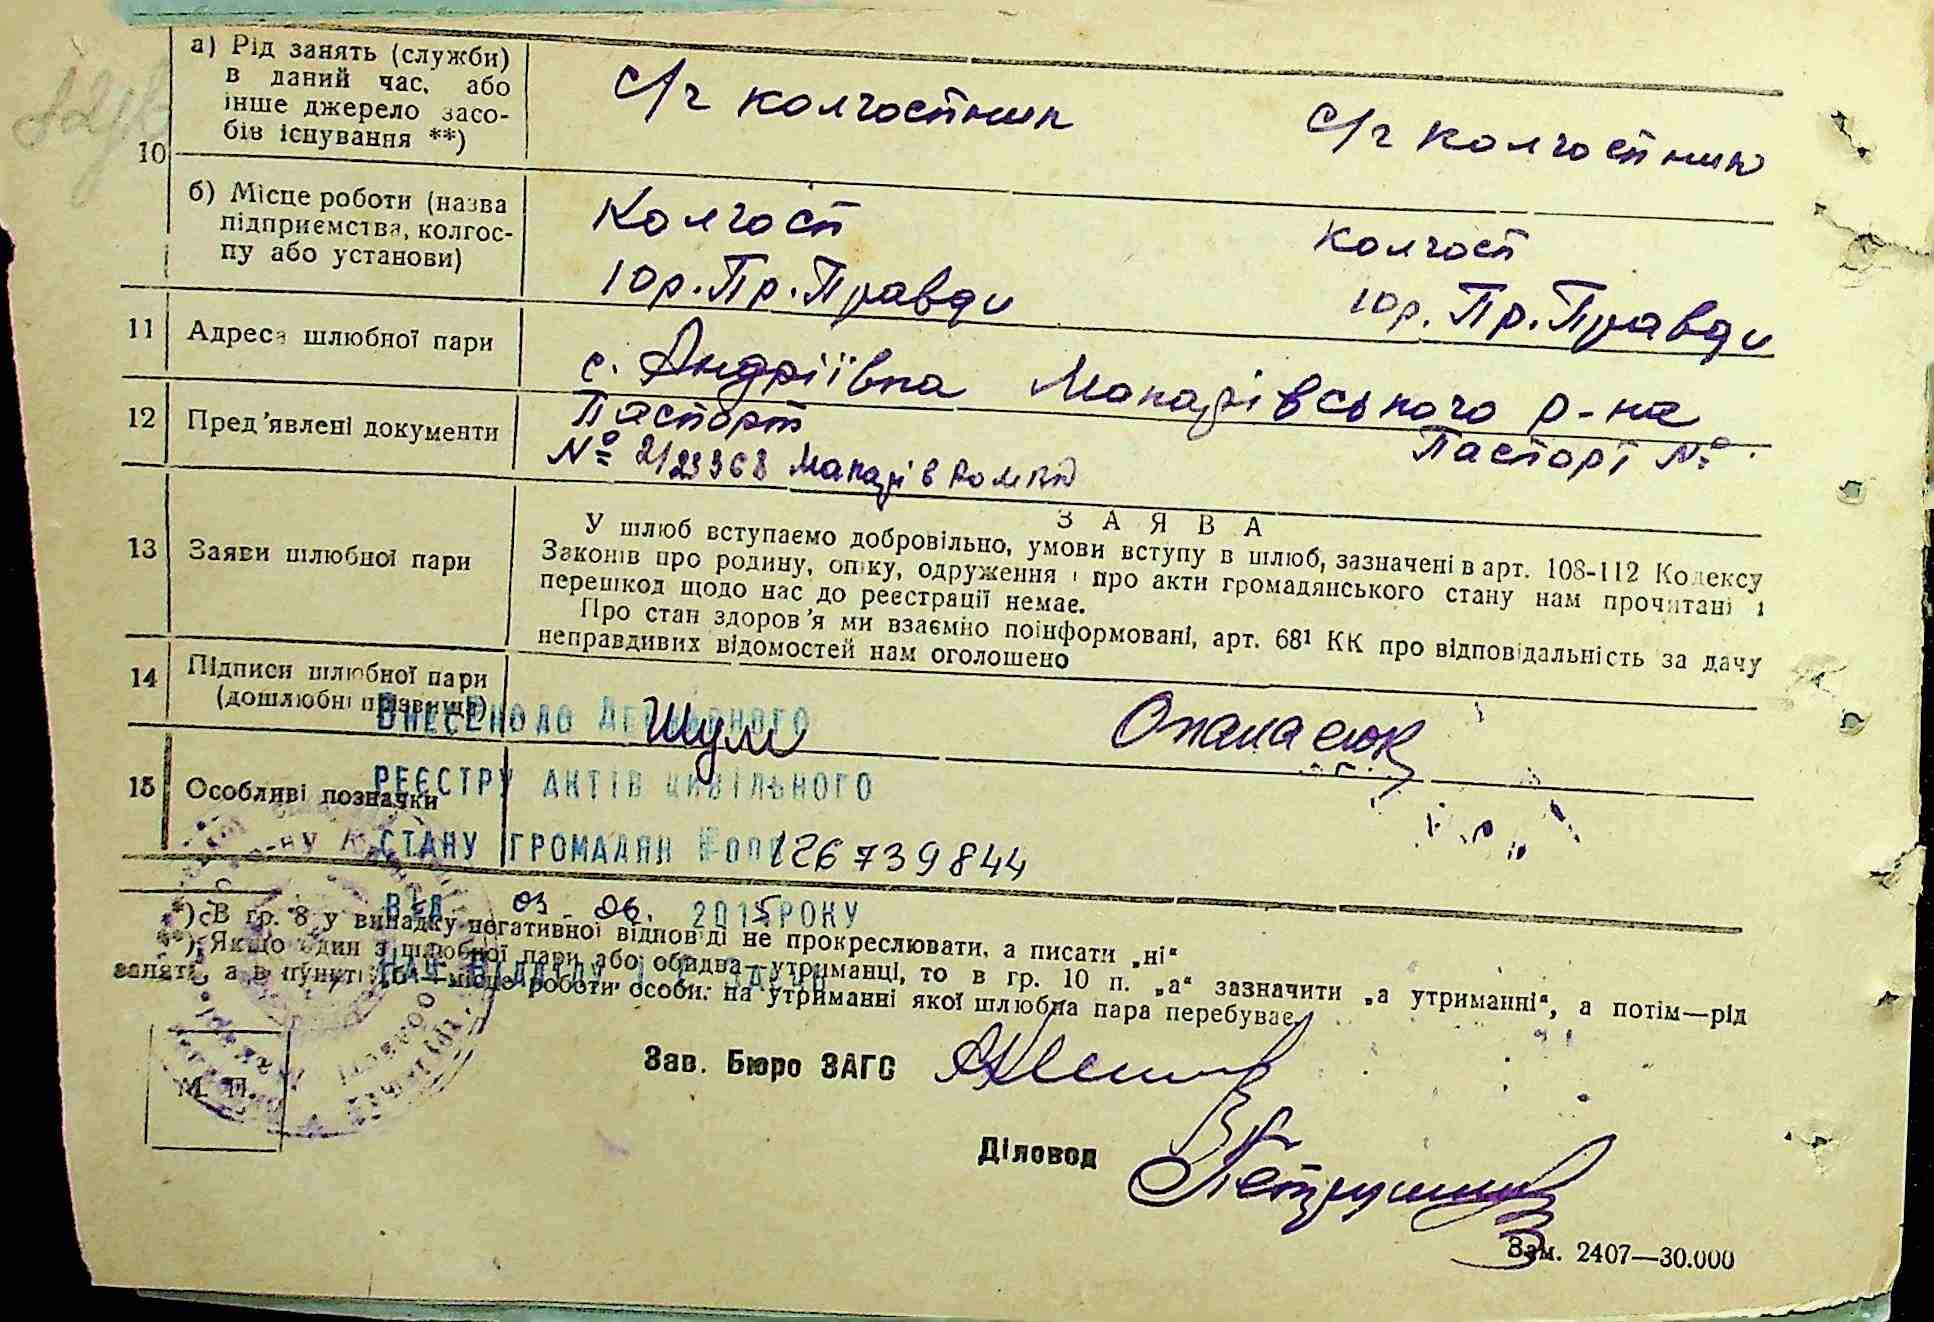 а) Рід занять (служби)
в даний час, або
інше джерело засо-
бів існування **)
с/г колгоспник с/г колгоспник
10
б) Місце роботи (назва
підприємства, колгос-
пу або установи)
Колгосп Колгосп
Юр. Пр. Правди Юр. Пр. Правди
11 Адреса шлюбної пари
с. Андріївка Макарівського р-на
12 Пред'явлені документи
Паспорт Паспорт №
№ 2/23368 Макарів
13 Заяви шлюбної пари
ЗАЯВА
У шлюб вступаємо добровільно, умови вступу в шлюб, зазначені в арт. 108-112 Кодексу
Законів про родину, опіку, одруження і про акти громадянського стану нам прочитані і
перешкод щодо нас до реєстрації немає.
Про стан здоров'я ми взаємно поінформовані, арт. 68¹ КК про відповідальність за дачу
неправдивих відомостей нам оголошено
14 Підписи шлюбної пари
(дошлюбні прізвища)
Шум Опанасюк
ВНЕСЕНО ДО ДЕРЖАВНОГО
РЕЄСТРУ АКТІВ ЦИВІЛЬНОГО
15 Особливі позначки
СТАНУ ГРОМАДЯН №00126739844
ВІД 03.06.2015 РОКУ
*) В гр. 8 у випадку негативної відповіді не прокреслювати, а писати „ні“
**) Якщо один з шлюбної пари або обидва—утриманці, то в гр. 10 п. „а“ зазначити „а утриманні“, а потім—рід
заняті, а в пункті „б“—місце роботи особи, на утриманні якої шлюбна пара перебуває.
Зав. Бюро ЗАГС
М. П.
Діловод
Зам. 2407—30.000